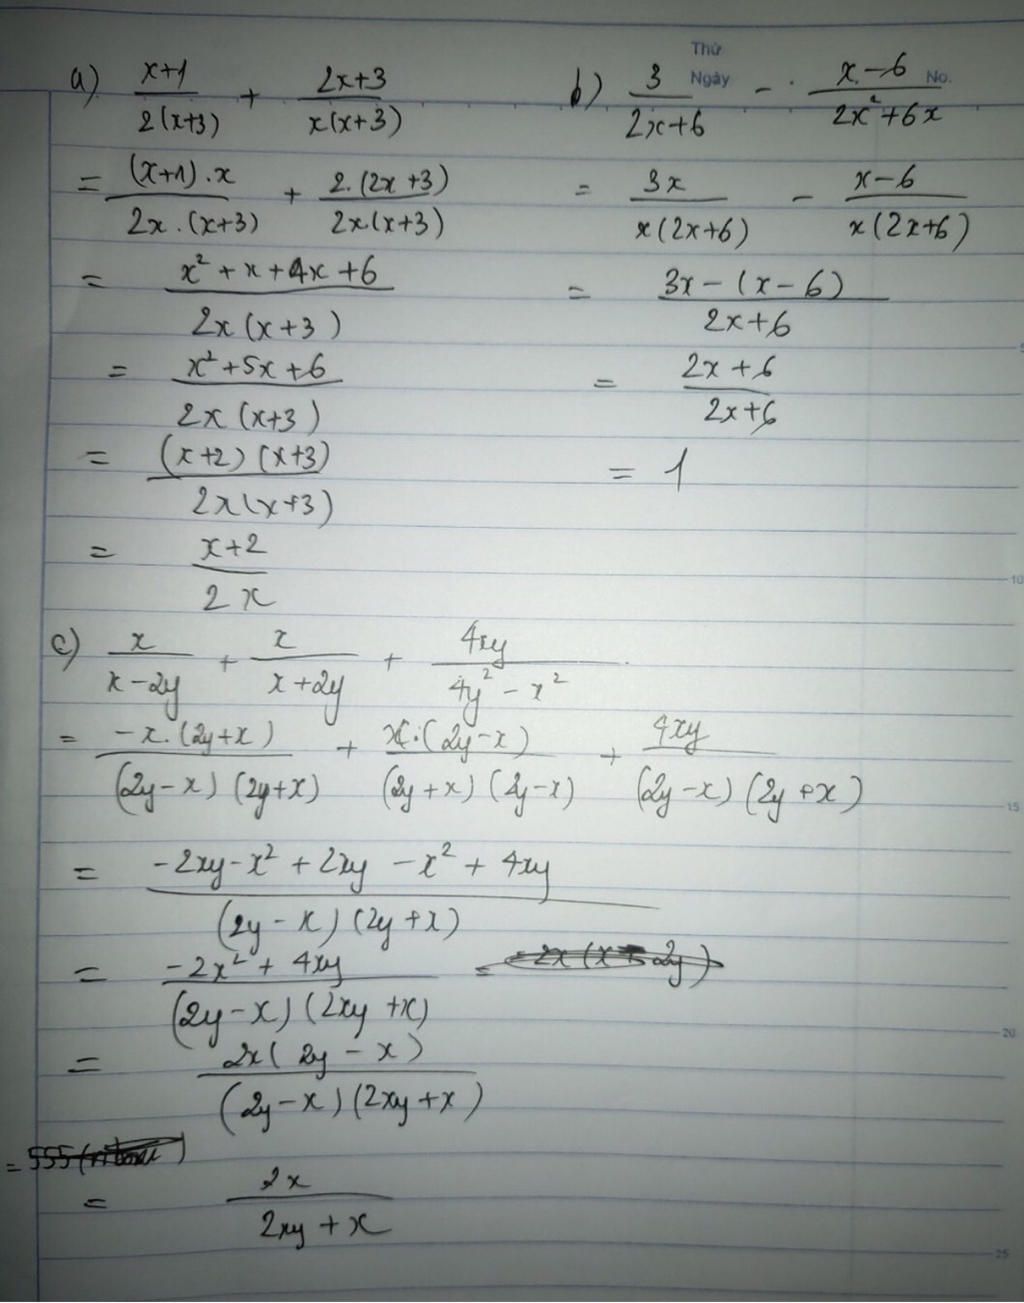 Thứ
Ngày
No.
a) (x+1)/(2(x+3)) + (2x+3)/(x(x+3))
= ((x+1).x)/(2x.(x+3)) + (2.(2x+3))/(2x(x+3))
= (x²+x+4x+6)/(2x(x+3))
= (x²+5x+6)/(2x(x+3))
= ((x+2)(x+3))/(2x(x+3))
= (x+2)/(2x)
b) 3/(2x+6) - (x-6)/(2x²+6x)
= 3x/(x(2x+6)) - (x-6)/(x(2x+6))
= (3x-(x-6))/(2x+6)
= (2x+6)/(2x+6)
= 1
c) x/(x-2y) + x/(x+2y) + 4xy/(4y²-x²)
= (-x.(2y+x))/((2y-x)(2y+x)) + (x.(2y-x))/((2y+x)(2y-x)) + 4xy/((2y-x)(2y+x))
= (-2xy-x²+2xy-x²+4xy)/((2y-x)(2y+x))
= (-2x²+4xy)/((2y-x)(2xy+x)) =
= (2x(2y-x))/((2y-x)(2xy+x))
= 2x/(2xy+x)
5
10
15
20
25